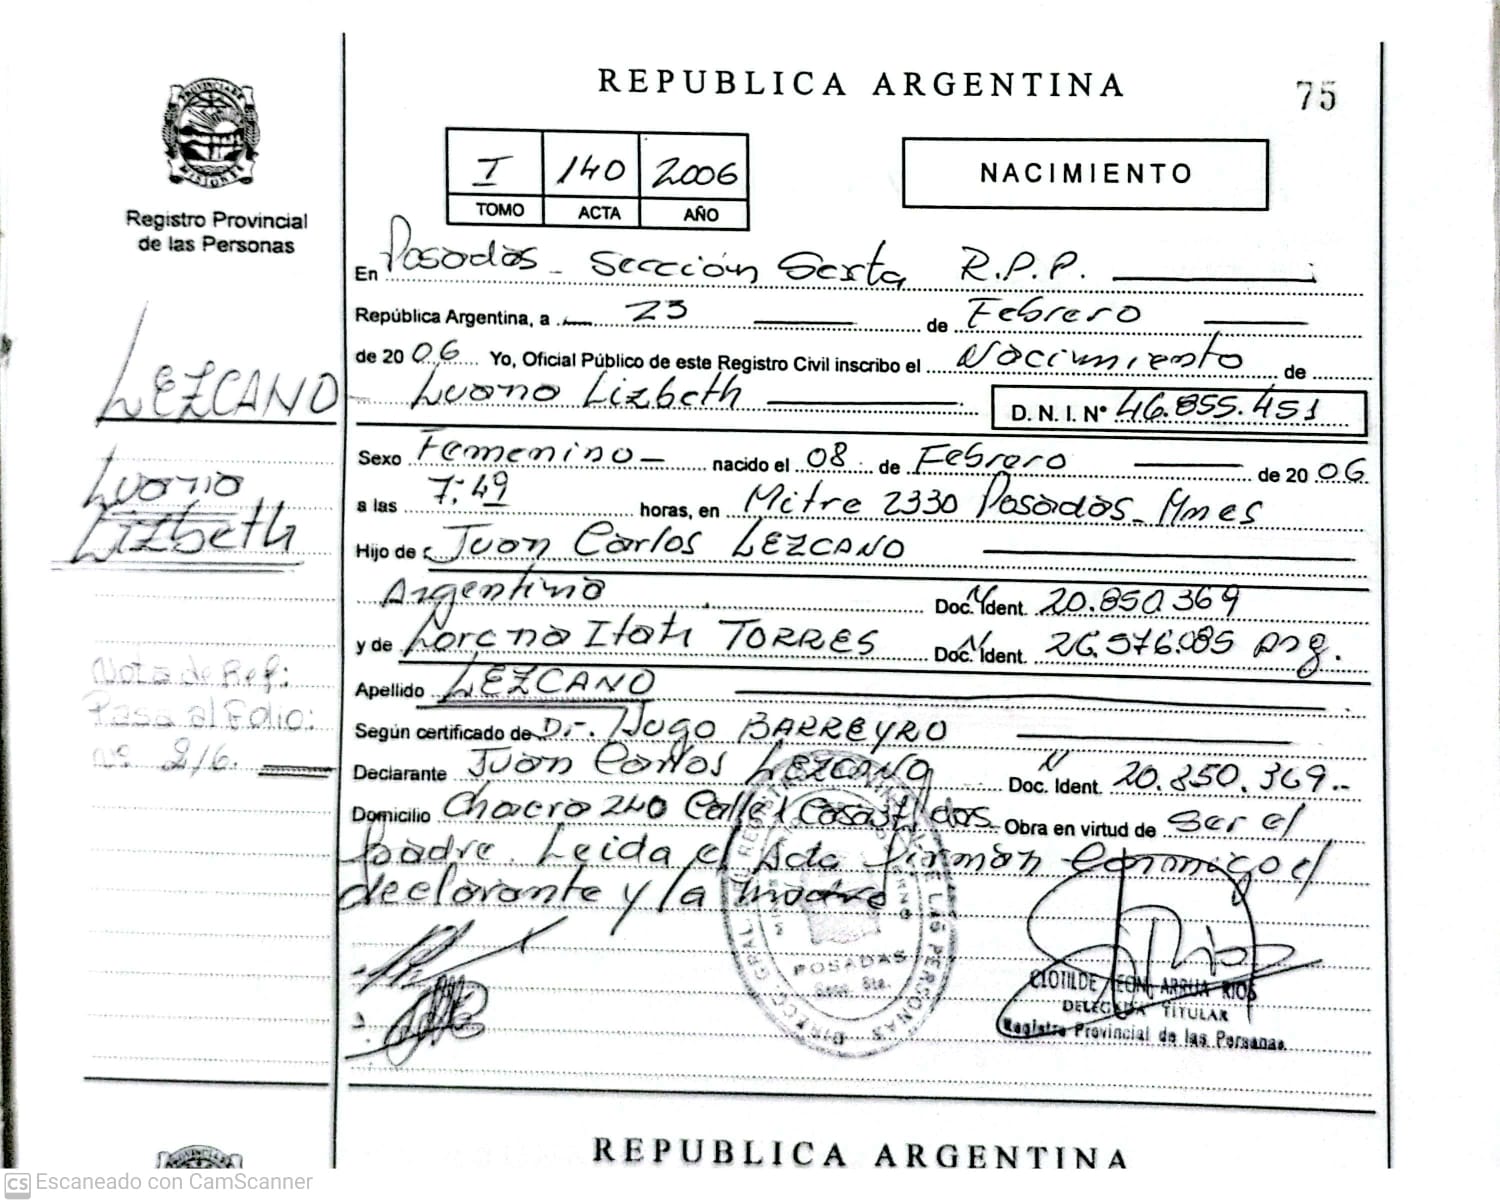 REPUBLICA ARGENTINA
75
PROVINCIA DE MISIONES
Registro Provincial
de las Personas
I 140 2006
TOMO ACTA AÑO
NACIMIENTO
En Posadas - Sección Sexta R.P.P.
República Argentina, a 23 de Febrero
de 2006 Yo, Oficial Público de este Registro Civil inscribo el Nacimiento de
Luana Lizbeth D. N. I. Nº 46.855.451
Sexo Femenino - nacido el 08 de Febrero de 2006
a las 7:49 horas, en Mitre 2330 Posadas - Mnes
Hijo de Juan Carlos LEZCANO
Argentino Doc. Ident. 20.850.369
y de Lorena Itati TORRES Doc. Ident. 26.576.085 Arg.
Apellido LEZCANO
Según certificado de Dr. Hugo BARREYRO
Declarante Juan Carlos LEZCANO Doc. Ident. 20.850.369.-
Domicilio Chacra 240 Calle Obra en virtud de ser el
padre. Leida el Acta firman conmigo el
declarante y la madre
LEZCANO
Luana
Lizbeth
Nota de Ref:
Pasa al Folio:
nº 216.
POSADAS
Secc. 6ta.
CLOTILDE ARRUA RIOS
DELEGADA TITULAR
Registro Provincial de las Personas
REPUBLICA ARGENTINA
CS Escaneado con CamScanner